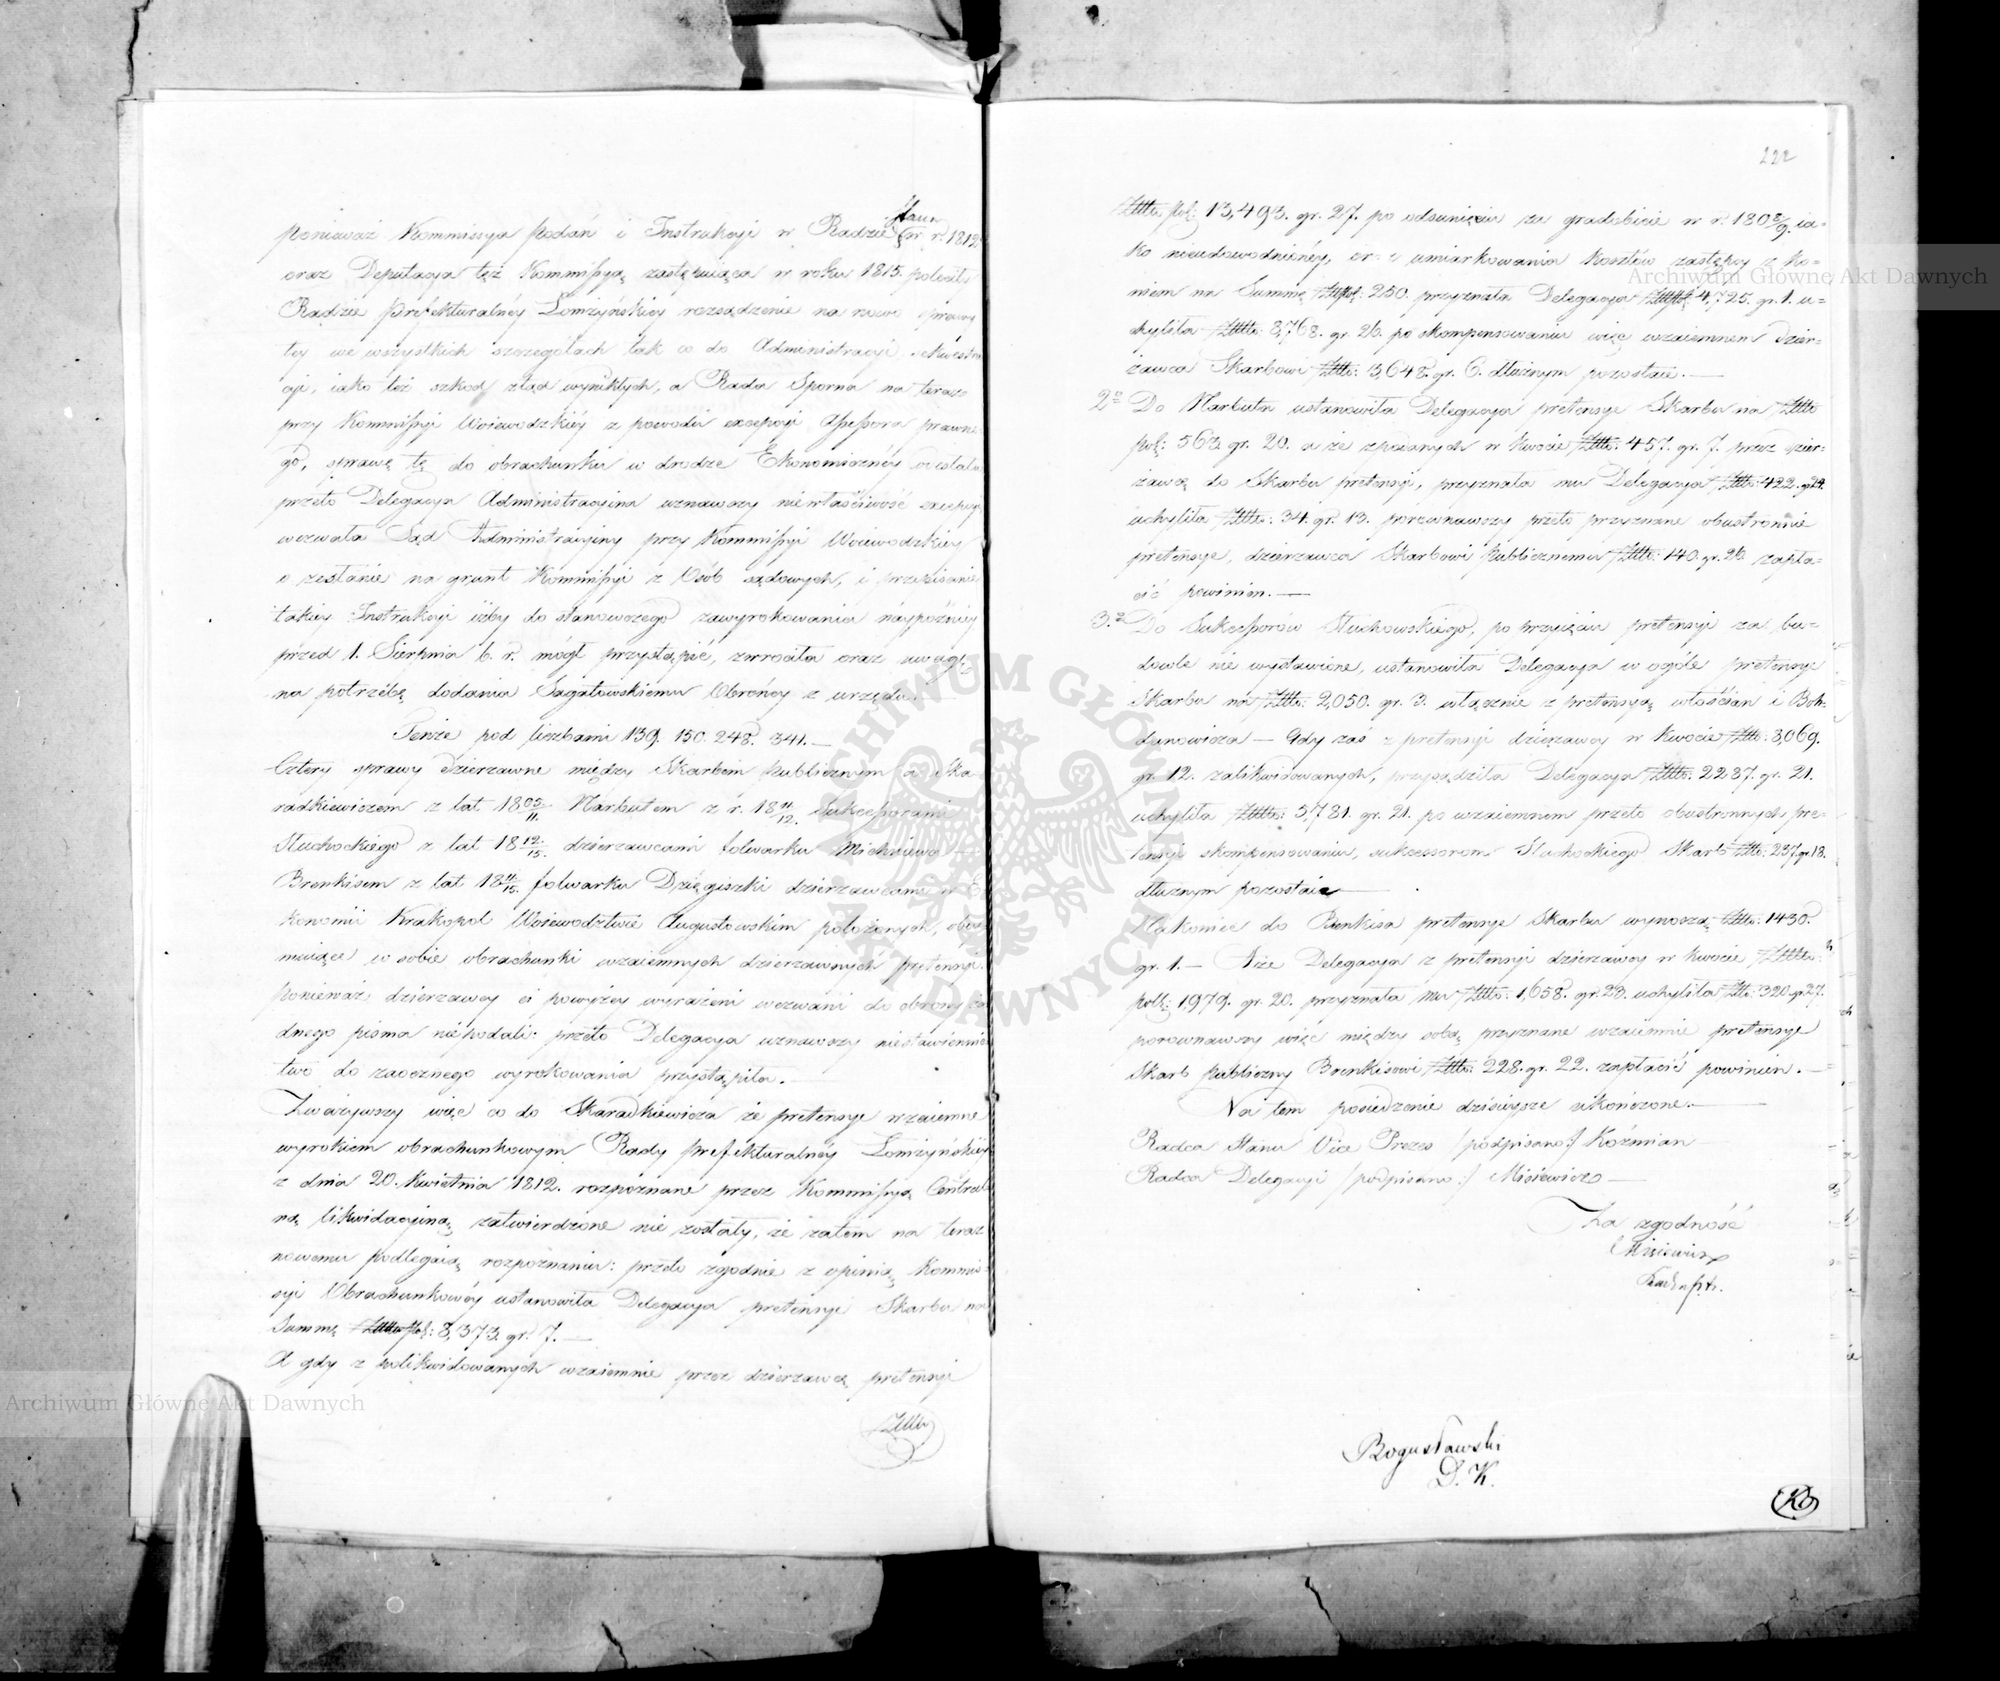 Stanu
ponieważ Kommissya Podań i Instrukcyi w Radzie w r. 1812.
oraz Deputacya też Kommissyą zastępuiąca w roku 1815. poleciła
Radzie Prefekturalnéy Łomżyńskiéy rozsądzenie na nowo sprawy
téy we wszystkich szczegółach tak co do Administracyi, sekwestra
cyi, iako też szkod ztąd wynikłych, a Rada Sporna na teraz
przy Kommissyi Woiewodzkiéy z powodu excepcyi Assessora prawne
go, sprawę tę do obrachunku w drodze Ekonomiczney odesłała
przeto Delegacya Administracyina uznawszy niewłaściwość excepcyi
wezwała Sąd Administracyiny przy Kommissyi Woiewodzkiey
o zesłanie na grunt Kommissyi z Osób sądowych, i przepisanie
takiey Instrukcyi iżby do stanowczego zawyrokowania naypóźniey
przed 1. Sierpnia b. r. mógł przystąpić, zwrociła oraz uwagę
na potrzébę dodania Sagatowskiemu Obrońcy z urzędu.
Tenże pod liczbami 139. 150. 248. 341.—
Cztery sprawy dzierzawne między Skarbem Publicznym a Ska
radkiewiczem z lat 1809/11. Narbutem z r. 1811/12. Sukcessorami
Słuchockiego z lat 1812/15. dzierzawcami folwarku Michniewo —
Brenkisem z lat 1814/15. folwarku Dzięgiszki dzierzawcami w E
konomii Krakopol Woiewodztwie Augustowskim położonych, obey
muiące w sobie obrachunki wzaiemnych dzierzawnych pretensyi.
ponieważ dzierzawcy ci powyżey wyrażeni wezwani do obrony ża
dnego pisma niepodali: przeto Delegacya uznawszy niestawienni
two do zaocznego wyrokowania przystąpiła.—
Zważywszy więc co do Skaradkiewicza że pretensye wzaiemne
wyrokiem obrachunkowym Rady Prefekturalnéy Łomżyńskiéy
z dnia 20. Kwietnia 1812. rozpoznane przez Kommissyą Central
ną likwidacyiną zatwierdzone nie zostały, że zatem na teraz
nowemu podlegaią rozpoznaniu: przeto zgodnie z opinią Kommis
syi Obrachunkowéy ustanowiła Delegacya pretensyi Skarbu na
Summę Złłto pol: 8,373 gr. 7.—
A gdy z zalikwidowanych wzaiemnie przez dzierzawcę pretensyi
Złłto
222
Złłto pol: 13,493. gr. 27. po odsunięciu za gradobicie w r. 1808/9. ia=
ko nieudowodnionéy, oraz umiarkowania kosztów zastępcy z ko=
niem na Summę Złłpol: 250. przyznała Delegacya Złłpol: 4,725. gr. 1. u=
chyliła Złłto: 8,768. gr. 26. po skompensowaniu więc wzaiemnem dzier=
zawca Skarbowi Złłto: 3,648. gr. 6. dłużnym pozostaie.—
2o Do Narbuta ustanowiła Delegacya pretensye Skarbu na Złłto
pol: 563. gr. 20. a że z podanych w kwocie Złłto: 457. gr. 7. przez dzier=
zawcę do Skarbu pretensyi, przyznała mu Delegacya Złłto: 422. gr 24.
uchyliła Złłto: 34. gr. 13. porównawszy przeto przyznane obustronnie
pretensye, dzierzawca Skarbowi Publicznemu Złłto: 140. gr. 26. zapła=
cić powinien.—
3.o Do Sukcessorów Słuchowskiego, po przyięciu pretensyi za bu=
dowle nie wystawione, ustanowiła Delegacya w ogóle pretensye
Skarbu na Złłto: 2,050. gr. 3. włącznie z pretensyą włościan i Boh=
danowicza — Gdy zaś z pretensyi dzierzawcy w kwocie Złłto: 8,069.
gr. 12. zalikwidowanych, przysądziła Delegacya Złłto: 2287. gr. 21.
uchyliła Złłto: 5,781. gr. 21. po wzaiemnem przeto obustronnych pre=
tensyi skompensowaniu, sukcessorom Słuchockiego Skarb Złłto: 237. gr. 18.
dłużnym pozostaie—
Nakoniec do Brenkisa pretensye Skarbu wynoszą Złłto: 1430.
gr. 1.— A że Delegacya z pretensyi dzierzawcy w kwocie Złłto:
pol: 1,979. gr. 20. przyznała mu Złłto: 1,658. gr. 23. uchyliła Złto: 320. gr. 27.
porównawszy więc między sobą przyznane wzaiemnie pretensye
Skarb Publiczny Brenkisowi Złłto: 228. gr. 22. zapłacić powinien.—
Na tem posiedzenie dzisieysze ukończone.—
Radca Stanu Vice Prezes /podpisano:/ Koźmian—
Radca Delegacyi /podpisano:/ Misiewicz—
Za zgodność
Misiewicz
Bogusławski
D. K.
Archiwum Główne Akt Dawnych
Archiwum Główne Akt Dawnych
ARCHIWUM GŁÓWNE AKT DAWNYCH